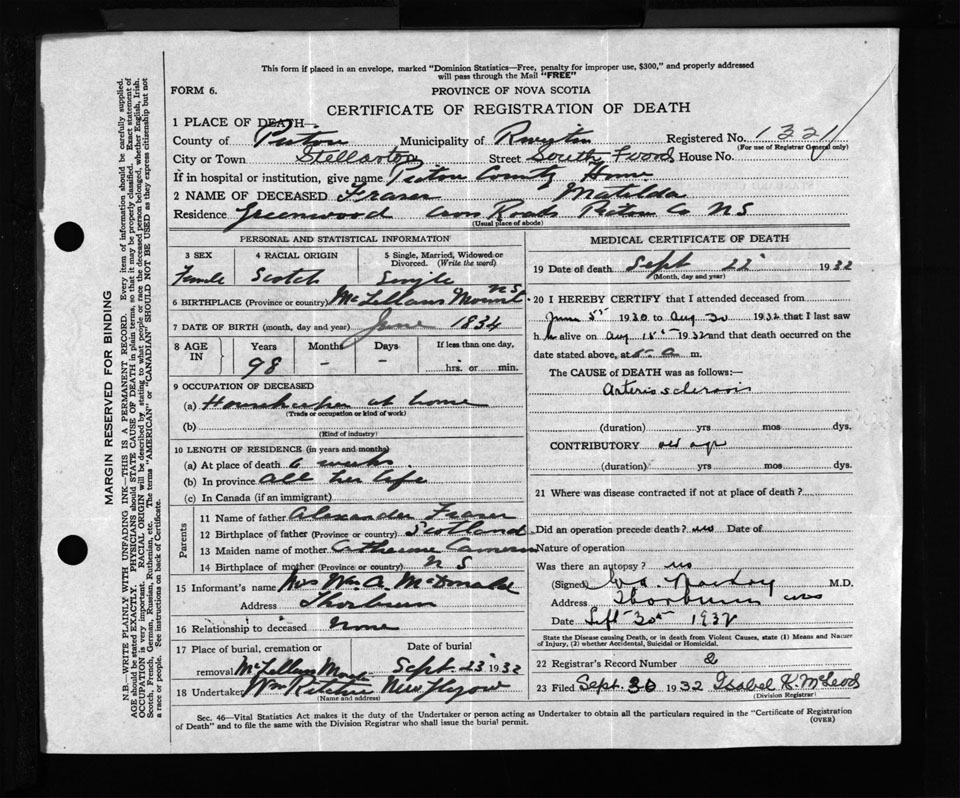 This form if placed in an envelope, marked "Dominion Statistics—Free, penalty for improper use, $300," and properly addressed
will pass through the Mail "FREE"
FORM 6. PROVINCE OF NOVA SCOTIA
CERTIFICATE OF REGISTRATION OF DEATH
1 PLACE OF DEATH—
County of Pictou Municipality of Registered No. 1321
(For use of Registrar General only)
City or Town Stellarton Street South House No.
If in hospital or institution, give name Pictou County Home
2 NAME OF DECEASED Fraser Matilda
Residence Greenwood Cross Roads Pictou Co NS
(Usual place of abode)
PERSONAL AND STATISTICAL INFORMATION
3 SEX 4 RACIAL ORIGIN 5 Single, Married, Widowed or
Divorced. (Write the word)
Female Scotch Single
6 BIRTHPLACE (Province or country) McLellans Mount NS
7 DATE OF BIRTH (month, day and year) June 1834
8 AGE IN Years Months Days If less than one day,
98 - - hrs. or min.
9 OCCUPATION OF DECEASED
(a) Housekeeper at home
(Trade or occupation or kind of work)
(b)
(Kind of industry)
10 LENGTH OF RESIDENCE (in years and months)
(a) At place of death 6 weeks
(b) In province all her life
(c) In Canada (if an immigrant)
Parents
11 Name of father Alexander Fraser
12 Birthplace of father (Province or country) Scotland
13 Maiden name of mother Catherine Cameron
14 Birthplace of mother (Province or country) N S
15 Informant's name Mrs Wm. A. McDonald
Address Thorburn
16 Relationship to deceased None
17 Place of burial, cremation or Date of burial
removal McLellans Mount Sept. 23 1932
18 Undertaker Wm Ritchie New Glasgow
(Name and address)
MEDICAL CERTIFICATE OF DEATH
19 Date of death Sept 22 1932
(Month, day and year)
20 I HEREBY CERTIFY that I attended deceased from
June 5th 1930 to Aug 30 1932 that I last saw
her alive on Aug 1932 and that death occurred on
date stated above, at m.
The CAUSE of DEATH was as follows:
Arteriosclerosis
(duration) yrs mos dys.
CONTRIBUTORY old age
(duration) yrs. mos. dys.
21 Where was disease contracted if not at place of death?
Did an operation precede death? no Date of
Nature of operation
Was there an autopsy? no
(Signed) M.D.
Address Thorburn NS
Date Sept 30th 1932
State the Disease causing Death, or in death from Violent Causes, state (1) Means and Nature
of Injury, (2) whether Accidental, Suicidal or Homicidal.
22 Registrar's Record Number 2
23 Filed Sept. 30 1932 Isabel K. McLeod
(Division Registrar)
Sec. 46—Vital Statistics Act makes it the duty of the Undertaker or person acting as Undertaker to obtain all the particulars required in the "Certificate of Registration
of Death" and to file the same with the Division Registrar who shall issue the burial permit. (OVER)
MARGIN RESERVED FOR BINDING
N.B.—WRITE PLAINLY WITH UNFADING INK—THIS IS A PERMANENT RECORD. Every item of information should be carefully supplied.
AGE should be stated EXACTLY. PHYSICIANS should STATE CAUSE OF DEATH in plain terms, so that it may be properly classified. Exact statement of
OCCUPATION is very important. RACIAL ORIGIN will be described by stating to what people or race the deceased person belonged, whether English, Irish,
Scotch, French, German, Russian, Ruthenian, etc. The terms "AMERICAN" or "CANADIAN" SHOULD NOT BE USED as they express citizenship but not
a race or people. See instructions on back of Certificate.